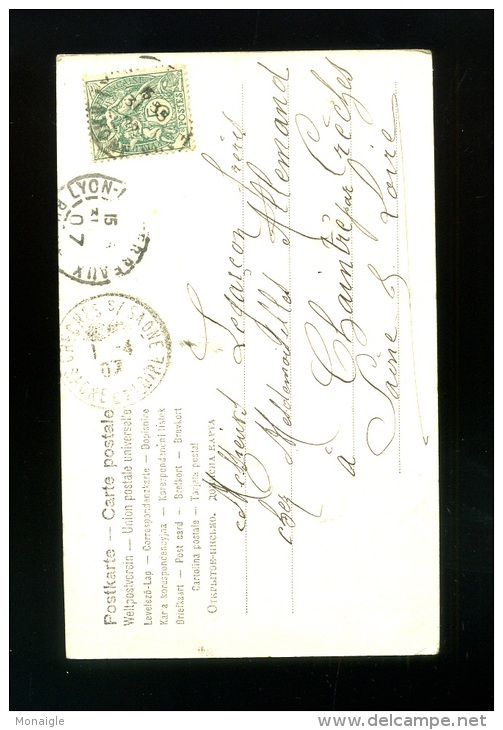 Postkarte — Carte postale
Weltpostverein — Union postale universelle
Levelező-Lap — Correspondenzkarte — Dopisnice
Karta korespondencyjna — Korespondenční lístek
Briefkaart — Post card — Brefkort — Brevkort
Cartolina postale — Tarjeta postal
ОТКРЫТОЕ-ПИСЬМО.
POSTES
LYON
15
07
CRECHES S/ SAONE
SAONE ET LOIRE
Messieurs Legarçon frères
chez Mesdemoiselles Allemand
à Chaintré par Crèches
Saône & Loire
Monaigle
http://www.delcampe.net